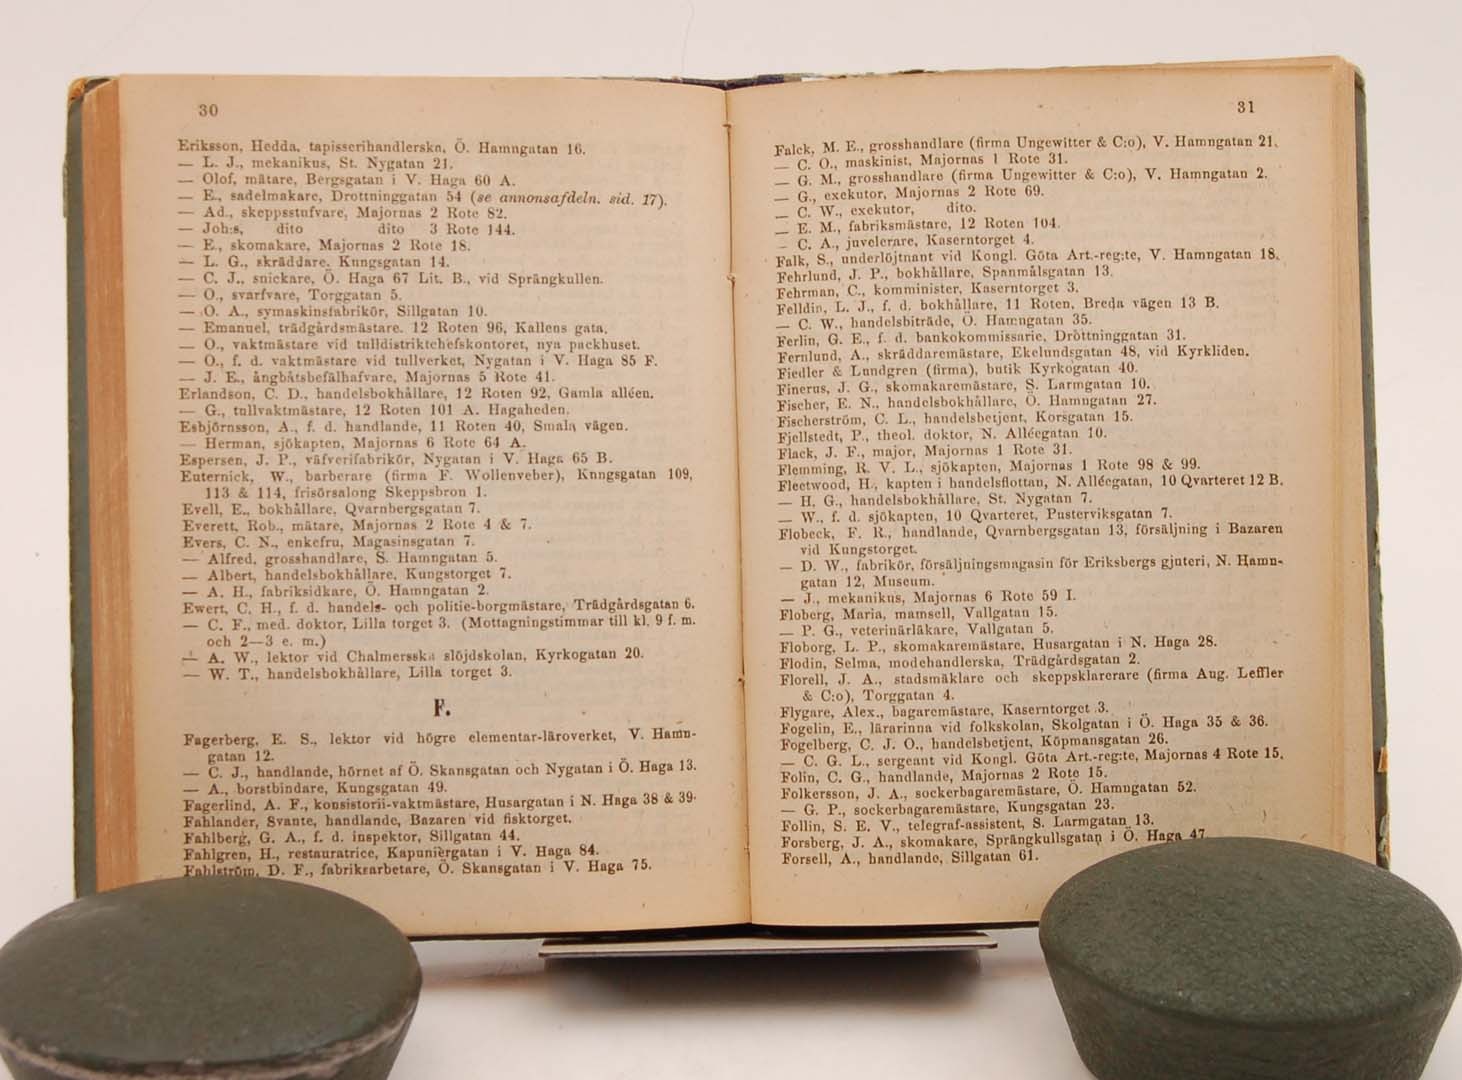 30
Eriksson, Hedda, tapisserihandlerska, Ö. Hamngatan 16.
— L. J., mekanikus, St. Nygatan 21.
— Olof, mätare, Bergsgatan i V. Haga 60 A.
— E., sadelmakare, Drottninggatan 54 (se annonsafdeln. sid. 17).
— Ad., skeppsstufvare, Majornas 2 Rote 82.
— Joh:s, dito dito 3 Rote 144.
— E., skomakare, Majornas 2 Rote 18.
— L. G., skräddare, Kungsgatan 14.
— C. J., snickare, Ö. Haga 67 Lit. B., vid Sprängkullen.
— O., svarfvare, Torggatan 5.
— O. A., symaskinsfabrikör, Sillgatan 10.
— Emanuel, trädgårdsmästare. 12 Roten 96, Kallens gata.
— O., vaktmästare vid tulldistriktchefskontoret, nya packhuset.
— O., f. d. vaktmästare vid tullverket, Nygatan i V. Haga 85 F.
— J. E., ångbåtsbefälhafvare, Majornas 5 Rote 41.
Erlandson, C. D., handelsbokhållare, 12 Roten 92, Gamla alléen.
— G., tullvaktmästare, 12 Roten 101 A. Hagaheden.
Esbjörnsson, A., f. d. handlande, 11 Roten 40, Smala vägen.
— Herman, sjökapten, Majornas 6 Rote 64 A.
Espersen, J. P., väfverifabrikör, Nygatan i V. Haga 65 B.
Euternick, W., barberare (firma F. Wollenveber), Kungsgatan 109,
113 & 114, frisörsalong Skeppsbron 1.
Evell, E., bokhållare, Qvarnbergsgatan 7.
Everett, Rob., mätare, Majornas 2 Rote 4 & 7.
Evers, C. N., enkefru, Magasinsgatan 7.
— Alfred, grosshandlare, S. Hamngatan 5.
— Albert, handelsbokhållare, Kungstorget 7.
— A. H., fabriksidkare, Ö. Hamngatan 2.
Ewert, C. H., f. d. handels- och politie-borgmästare, Trädgårdsgatan 6.
— C. F., med. doktor, Lilla torget 3. (Mottagningstimmar till kl. 9 f. m.
och 2—3 e. m.)
— A. W., lektor vid Chalmersska slöjdskolan, Kyrkogatan 20.
— W. T., handelsbokhållare, Lilla torget 3.
F.
Fagerberg, E. S., lektor vid högre elementar-läroverket, V. Hamn-
gatan 12.
— C. J., handlande, hörnet af Ö. Skansgatan och Nygatan i Ö. Haga 13.
— A., borstbindare, Kungsgatan 49.
Fagerlind, A. F., konsistorii-vaktmästare, Husargatan i N. Haga 38 & 39.
Fahlander, Svante, handlande, Bazaren vid fisktorget.
Fahlberg, G. A., f. d. inspektor, Sillgatan 44.
Fahlgren, H., restauratrice, Kapuniergatan i V. Haga 84.
Fahlström, D. F., fabriksarbetare, Ö. Skansgatan i V. Haga 75.
31
Falck, M. E., grosshandlare (firma Ungewitter & C:o), V. Hamngatan 21.
— C. O., maskinist, Majornas 1 Rote 31.
— G. M., grosshandlare (firma Ungewitter & C:o), V. Hamngatan 2.
— G., exekutor, Majornas 2 Rote 69.
— C. W., exekutor, dito.
— E. M., fabriksmästare, 12 Roten 104.
— C. A., juvelerare, Kaserntorget 4.
Falk, S., underlöjtnant vid Kongl. Göta Art.-reg:te, V. Hamngatan 18.
Fehrlund, J. P., bokhållare, Spanmålsgatan 13.
Fehrman, C., komminister, Kaserntorget 3.
Felldin, L. J., f. d. bokhållare, 11 Roten, Breda vägen 13 B.
— C. W., handelsbiträde, Ö. Hamngatan 35.
Ferlin, G. E., f. d. bankokommissarie, Drottninggatan 31.
Fernlund, A., skräddaremästare, Ekelundsgatan 48, vid Kyrkliden.
Fiedler & Lundgren (firma), butik Kyrkogatan 40.
Finerus, J. G., skomakaremästare, S. Larmgatan 10.
Fischer, E. N., handelsbokhållare, Ö. Hamngatan 27.
Fischerström, C. L., handelsbetjent, Korsgatan 15.
Fjellstedt, P., theol. doktor, N. Alléegatan 10.
Flack, J. F., major, Majornas 1 Rote 31.
Flemming, R. V. L., sjökapten, Majornas 1 Rote 98 & 99.
Fleetwood, H., kapten i handelsflottan, N. Alléegatan, 10 Qvarteret 12 B.
— H. G., handelsbokhållare, St. Nygatan 7.
— W., f. d. sjökapten, 10 Qvarteret, Pusterviksgatan 7.
Flobeck, F. R., handlande, Qvarnbergsgatan 13, försäljning i Bazaren
vid Kungstorget.
— D. W., fabrikör, försäljningsmagasin för Eriksbergs gjuteri, N. Hamn-
gatan 12, Museum.
— J., mekanikus, Majornas 6 Rote 59 I.
Floberg, Maria, mamsell, Vallgatan 15.
— P. G., veterinärläkare, Vallgatan 5.
Floborg, L. P., skomakaremästare, Husargatan i N. Haga 28.
Flodin, Selma, modehandlerska, Trädgårdsgatan 2.
Florell, J. A., stadsmäklare och skeppsklarerare (firma Aug. Leffler
& C:o), Torggatan 4.
Flygare, Alex., bagaremästare, Kaserntorget 3.
Fogelin, E., lärarinna vid folkskolan, Skolgatan i Ö. Haga 35 & 36.
Fogelberg, C. J. O., handelsbetjent, Köpmansgatan 26.
— C. G. L., sergeant vid Kongl. Göta Art.-reg:te, Majornas 4 Rote 15.
Folin, C. G., handlande, Majornas 2 Rote 15.
Folkersson, J. A., sockerbagaremästare, Ö. Hamngatan 52.
— G. P., sockerbagaremästare, Kungsgatan 23.
Follin, S. E. V., telegraf-assistent, S. Larmgatan 13.
Forsberg, J. A., skomakare, Sprängkullsgatan i Ö. Haga 47.
Forsell, A., handlande, Sillgatan 61.